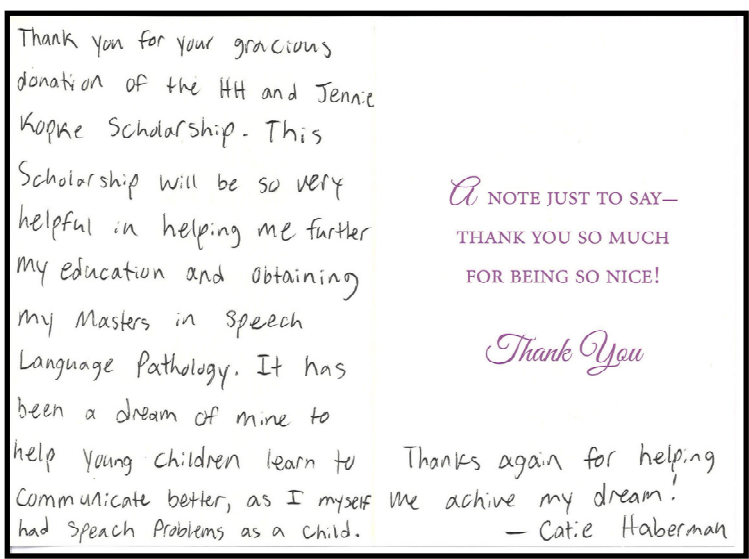 Thank you for your gracious
donation of the HH and Jennie
Kopke Scholarship. This
Scholarship will be so very
helpful in helping me further
my education and obtaining
my Masters in Speech
Language Pathology. It has
been a dream of mine to
help young children learn to
communicate better, as I myself
had speach problems as a child.
A NOTE JUST TO SAY—
THANK YOU SO MUCH
FOR BEING SO NICE!
Thank You
Thanks again for helping
me achive my dream!
— Catie Haberman